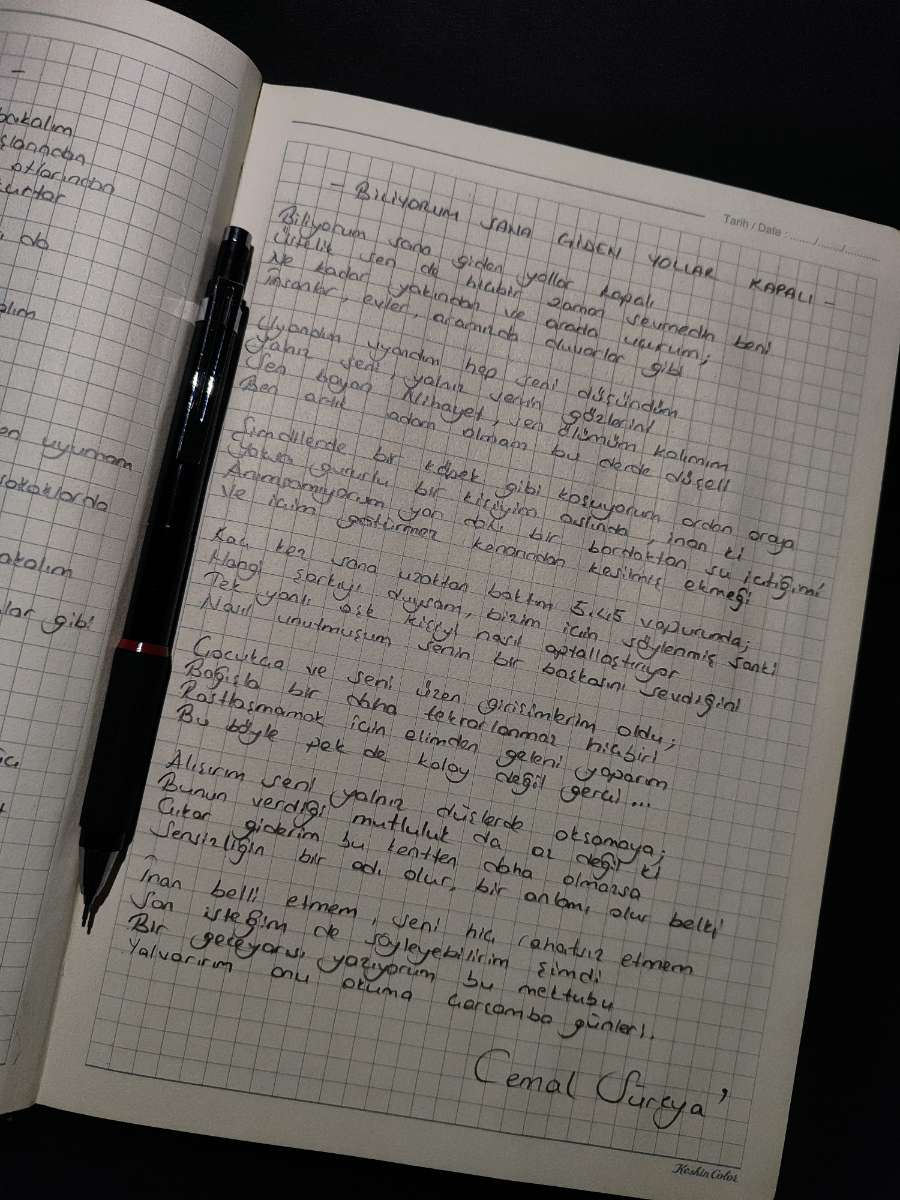 bakalım
otlarından
da
alım
en uyumam
sokaklarda
akalım
lar gibi
Tarih / Date : ....../....../............
- BİLİYORUM SANA GİDEN YOLLAR KAPALI -
Biliyorum sana giden yollar kapalı
Üstelik sen de hiçbir zaman sevmedin beni
Ne kadar yakından ve arada uçurum;
İnsanlar, evler, aramızda duvarlar gibi
Uyandım uyandım hep seni düşündüm
Yalnız seni, yalnız senin gözlerini
Sen bayan Nihayet, sen ölümüm kalımım
Ben artık adam olmam bu derde düşeli
Şimdilerde bir köpek gibi koşuyorum ordan oraya
Yoksa gururlu bir kişiyim aslında, inan ki
Anımsamıyorum yarı dolu bir bardaktan su içtiğimi
Ve içim götürmez kenarından kesilmiş ekmeği
Kaç kez sana uzaktan baktım 5.45 vapurunda;
Hangi şarkıyı duysam, bizim için söylenmiş sanki
Tek yanlı aşk kişiyi nasıl aptallaştırıyor
Nasıl unutmuşum senin bir başkasını sevdiğini
Çocukça ve seni üzen girişimlerim oldu;
Bağışla bir daha tekrarlanmaz hiçbiri
Rastlaşmamak için elimden geleni yaparım
Bu böyle pek de kolay değil gerçi...
Alışırım seni yalnız düşlerde okşamaya;
Bunun verdiği mutluluk da az değil ki
Çıkar giderim bu kentten daha olmazsa
Sensizliğin bir adı olur, bir anlamı olur belki
İnan belli etmem, seni hiç rahatsız etmem
Son isteğim de söyleyebilirim şimdi
Bir geceyarısı yazıyorum bu mektubu
Yalvarırım onu okuma çarşamba günleri.
Cemal Süreya'
KeskinColor